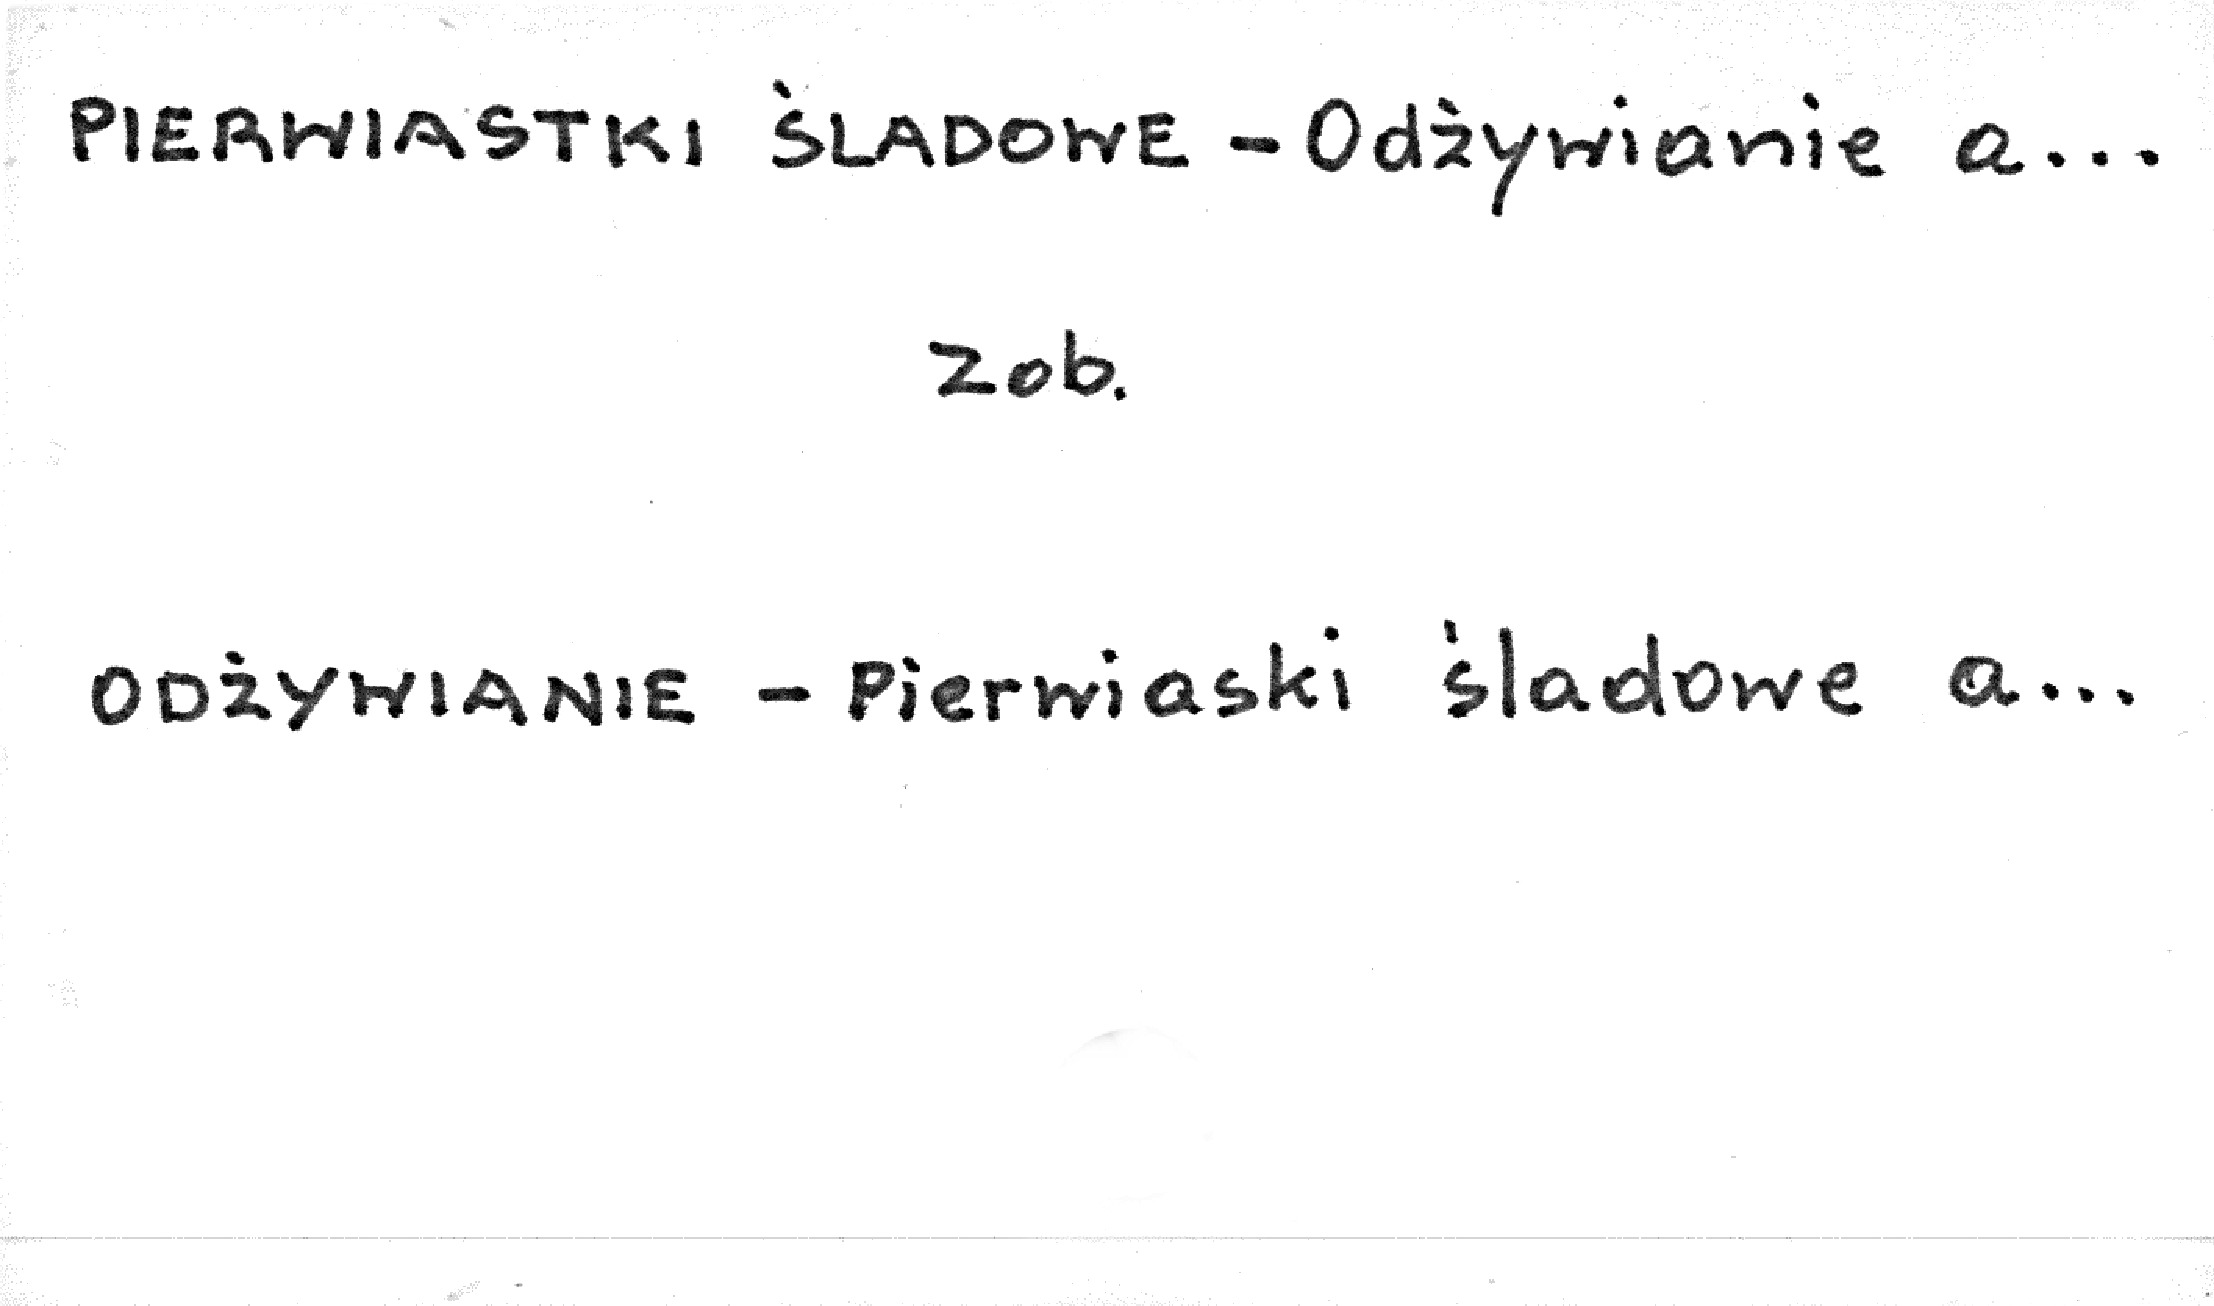 PIERWIASTKI ŚLADOWE - Odżywianie a...
Zob.
ODŻYWIANIE - Pierwiaski śladowe a...